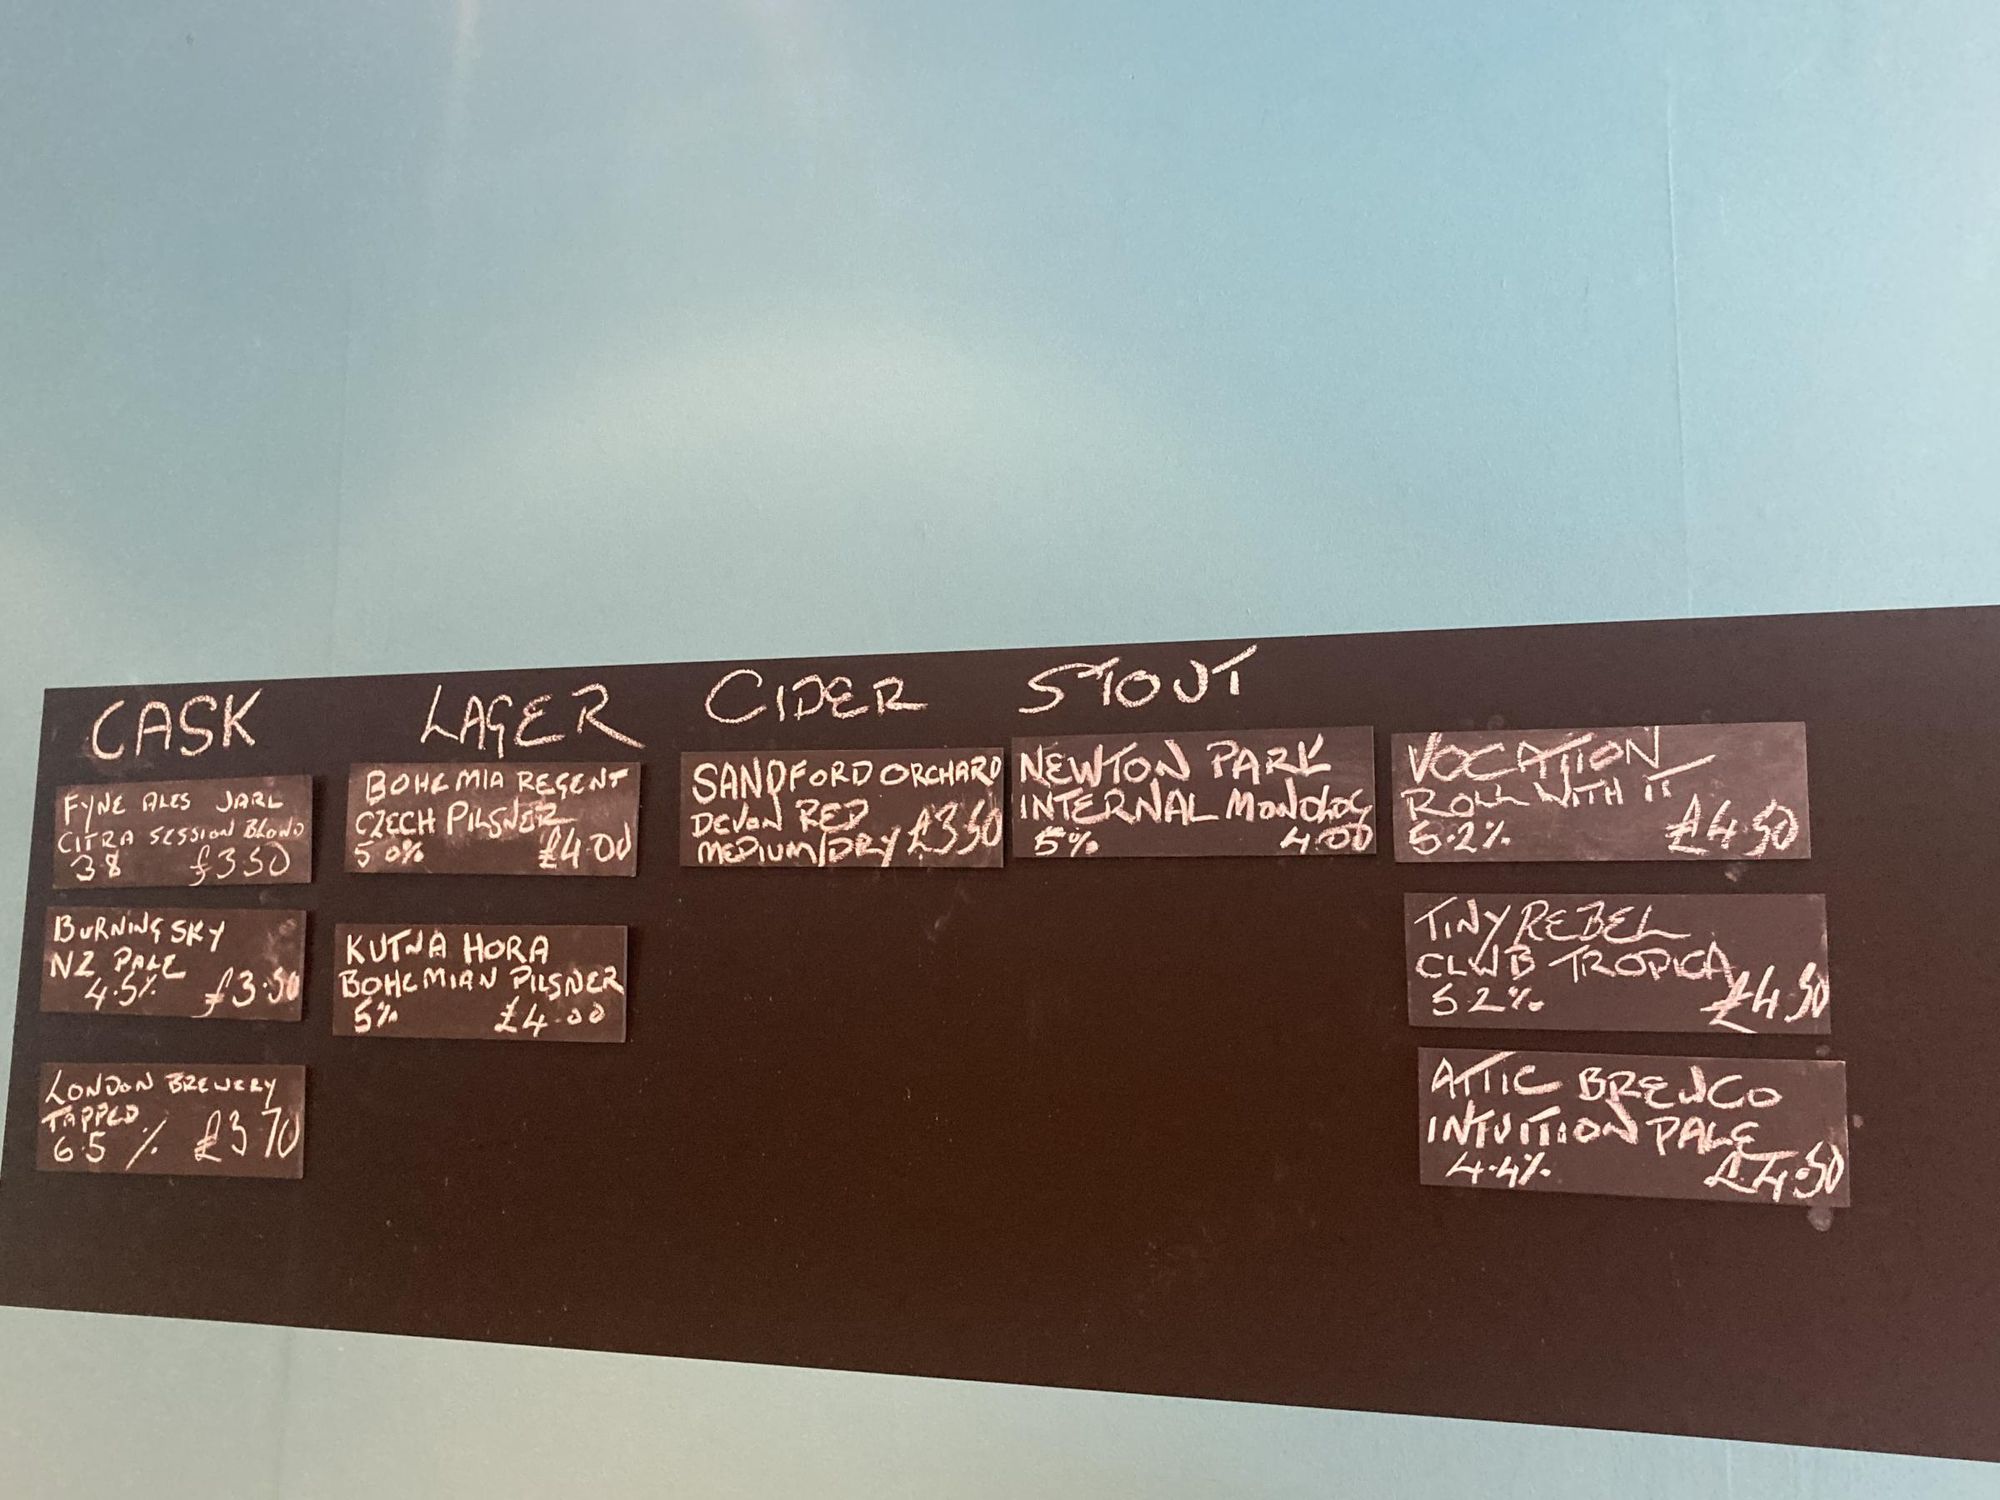 CASK
FYNE ALES JARL
CITRA SESSION BLOND
3.8 £3.50
BURNING SKY
NZ PALE
4.5% £3.50
LONDON BREWERY
TAPPED
6.5 % £3.70
LAGER
BOHEMIA REGENT
CZECH PILSNER
5.0% £4.00
KUTNA HORA
BOHEMIAN PILSNER
5% £4.00
CIDER
SANDFORD ORCHARD
DEVON RED
MEDIUM/DRY £3.50
STOUT
NEWTON PARK
INTERNAL MONOLOG
5% 4.00
VOCATION
ROLL WITH IT
5.2% £4.50
TINY REBEL
CLWB TROPICA
5.2% £4.50
ATTIC BREWCO
INTUITION PALE
4.4% £4.50